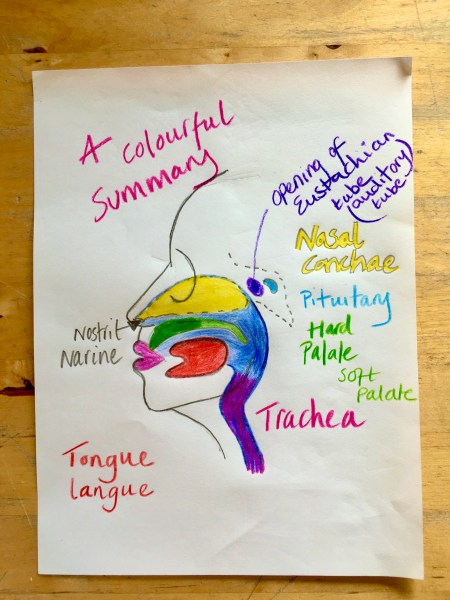 A colourful
Summary
opening of
Eustachian
tube
(auditory
tube)
Nasal
Conchae
Pituitary
Hard
Palate
Soft
Palate
Nostril
Narine
Trachea
Tongue
langue